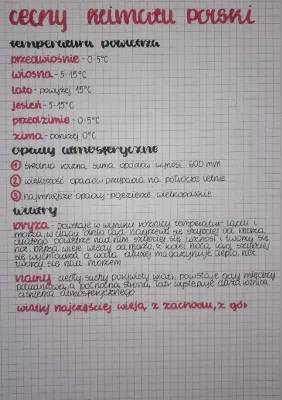 cechy klimatu polski
temperatura powietrza
przedwiośnie - 0-5°C
wiosna - 5-15°C
lato - powyżej 15°C
jesień - 5-15°C
przedzimie - 0-5°C
zima - poniżej 0°C
opady atmosferyczne
① średnia roczna suma opadów wynosi 600 mm
② większość opadów przypada na półrocze letnie
③ najmniejsze opady - pojezierze wielkopolskie
wiatry
bryza - powstaje w wyniku różnicy temperatur lądu i
morza, w ciągu dnia ląd nagrzewa się szybciej od morza,
dlatego powietrze nad nim szybciej się unosi i tworzy się
bryza, wieje wtedy od morza, z kolei nocą ląd szybciej
się wychładza, a woda dłużej magazynuje ciepło,
tworzy się nad morzem
halny - ciepły, suchy, porywisty wiatr, powstaje gdy między
południową, a północną stroną tatr występuje duża różnica
ciśnienia atmosferycznego
wiatry najczęściej wieją z zachodu, z gór